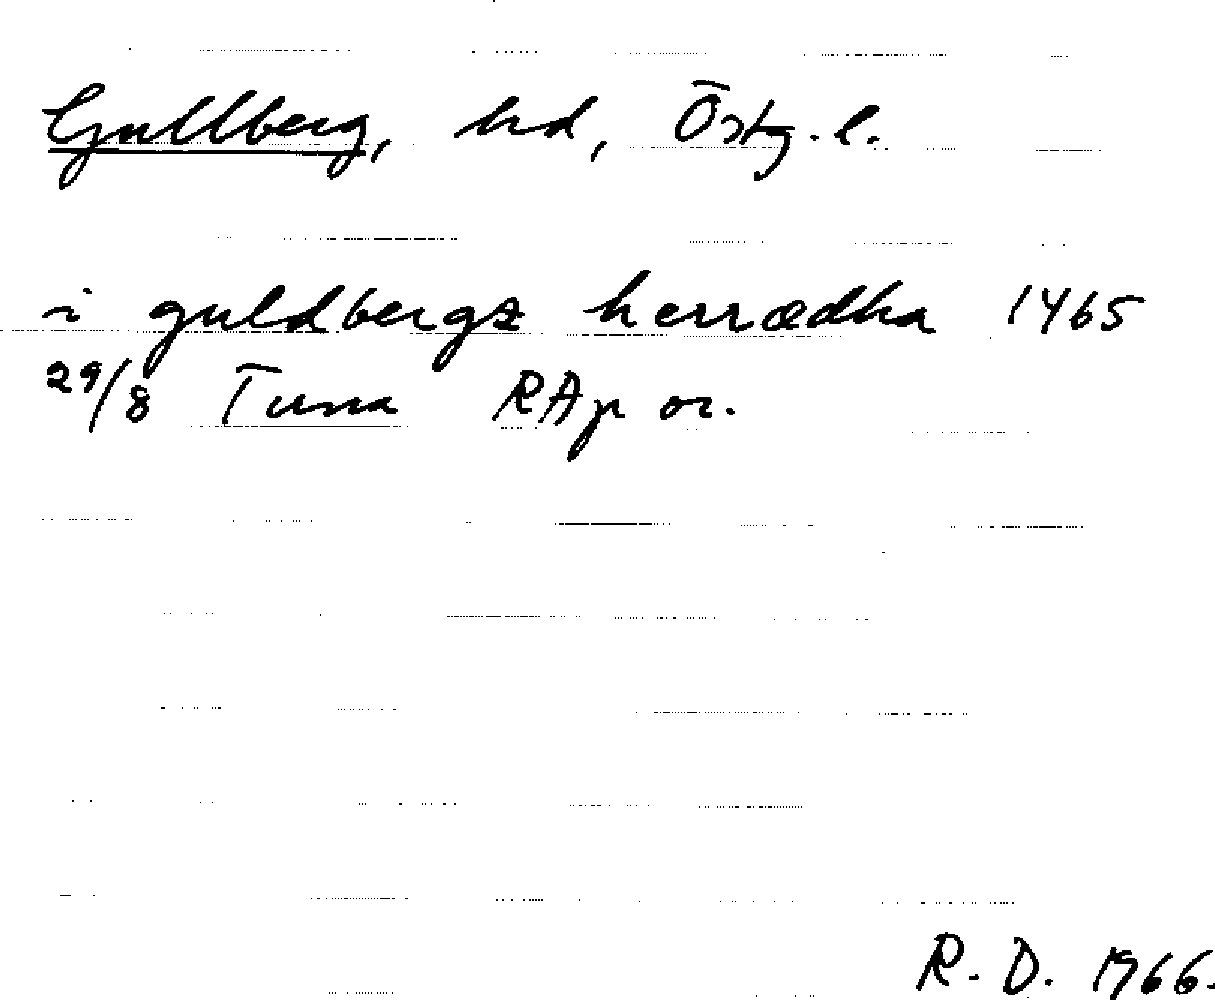 Gullberg, hd, Östg. l.
i guldbergz herrædha 1465
29/8 Tuna RAp or.
R. D. 1966.